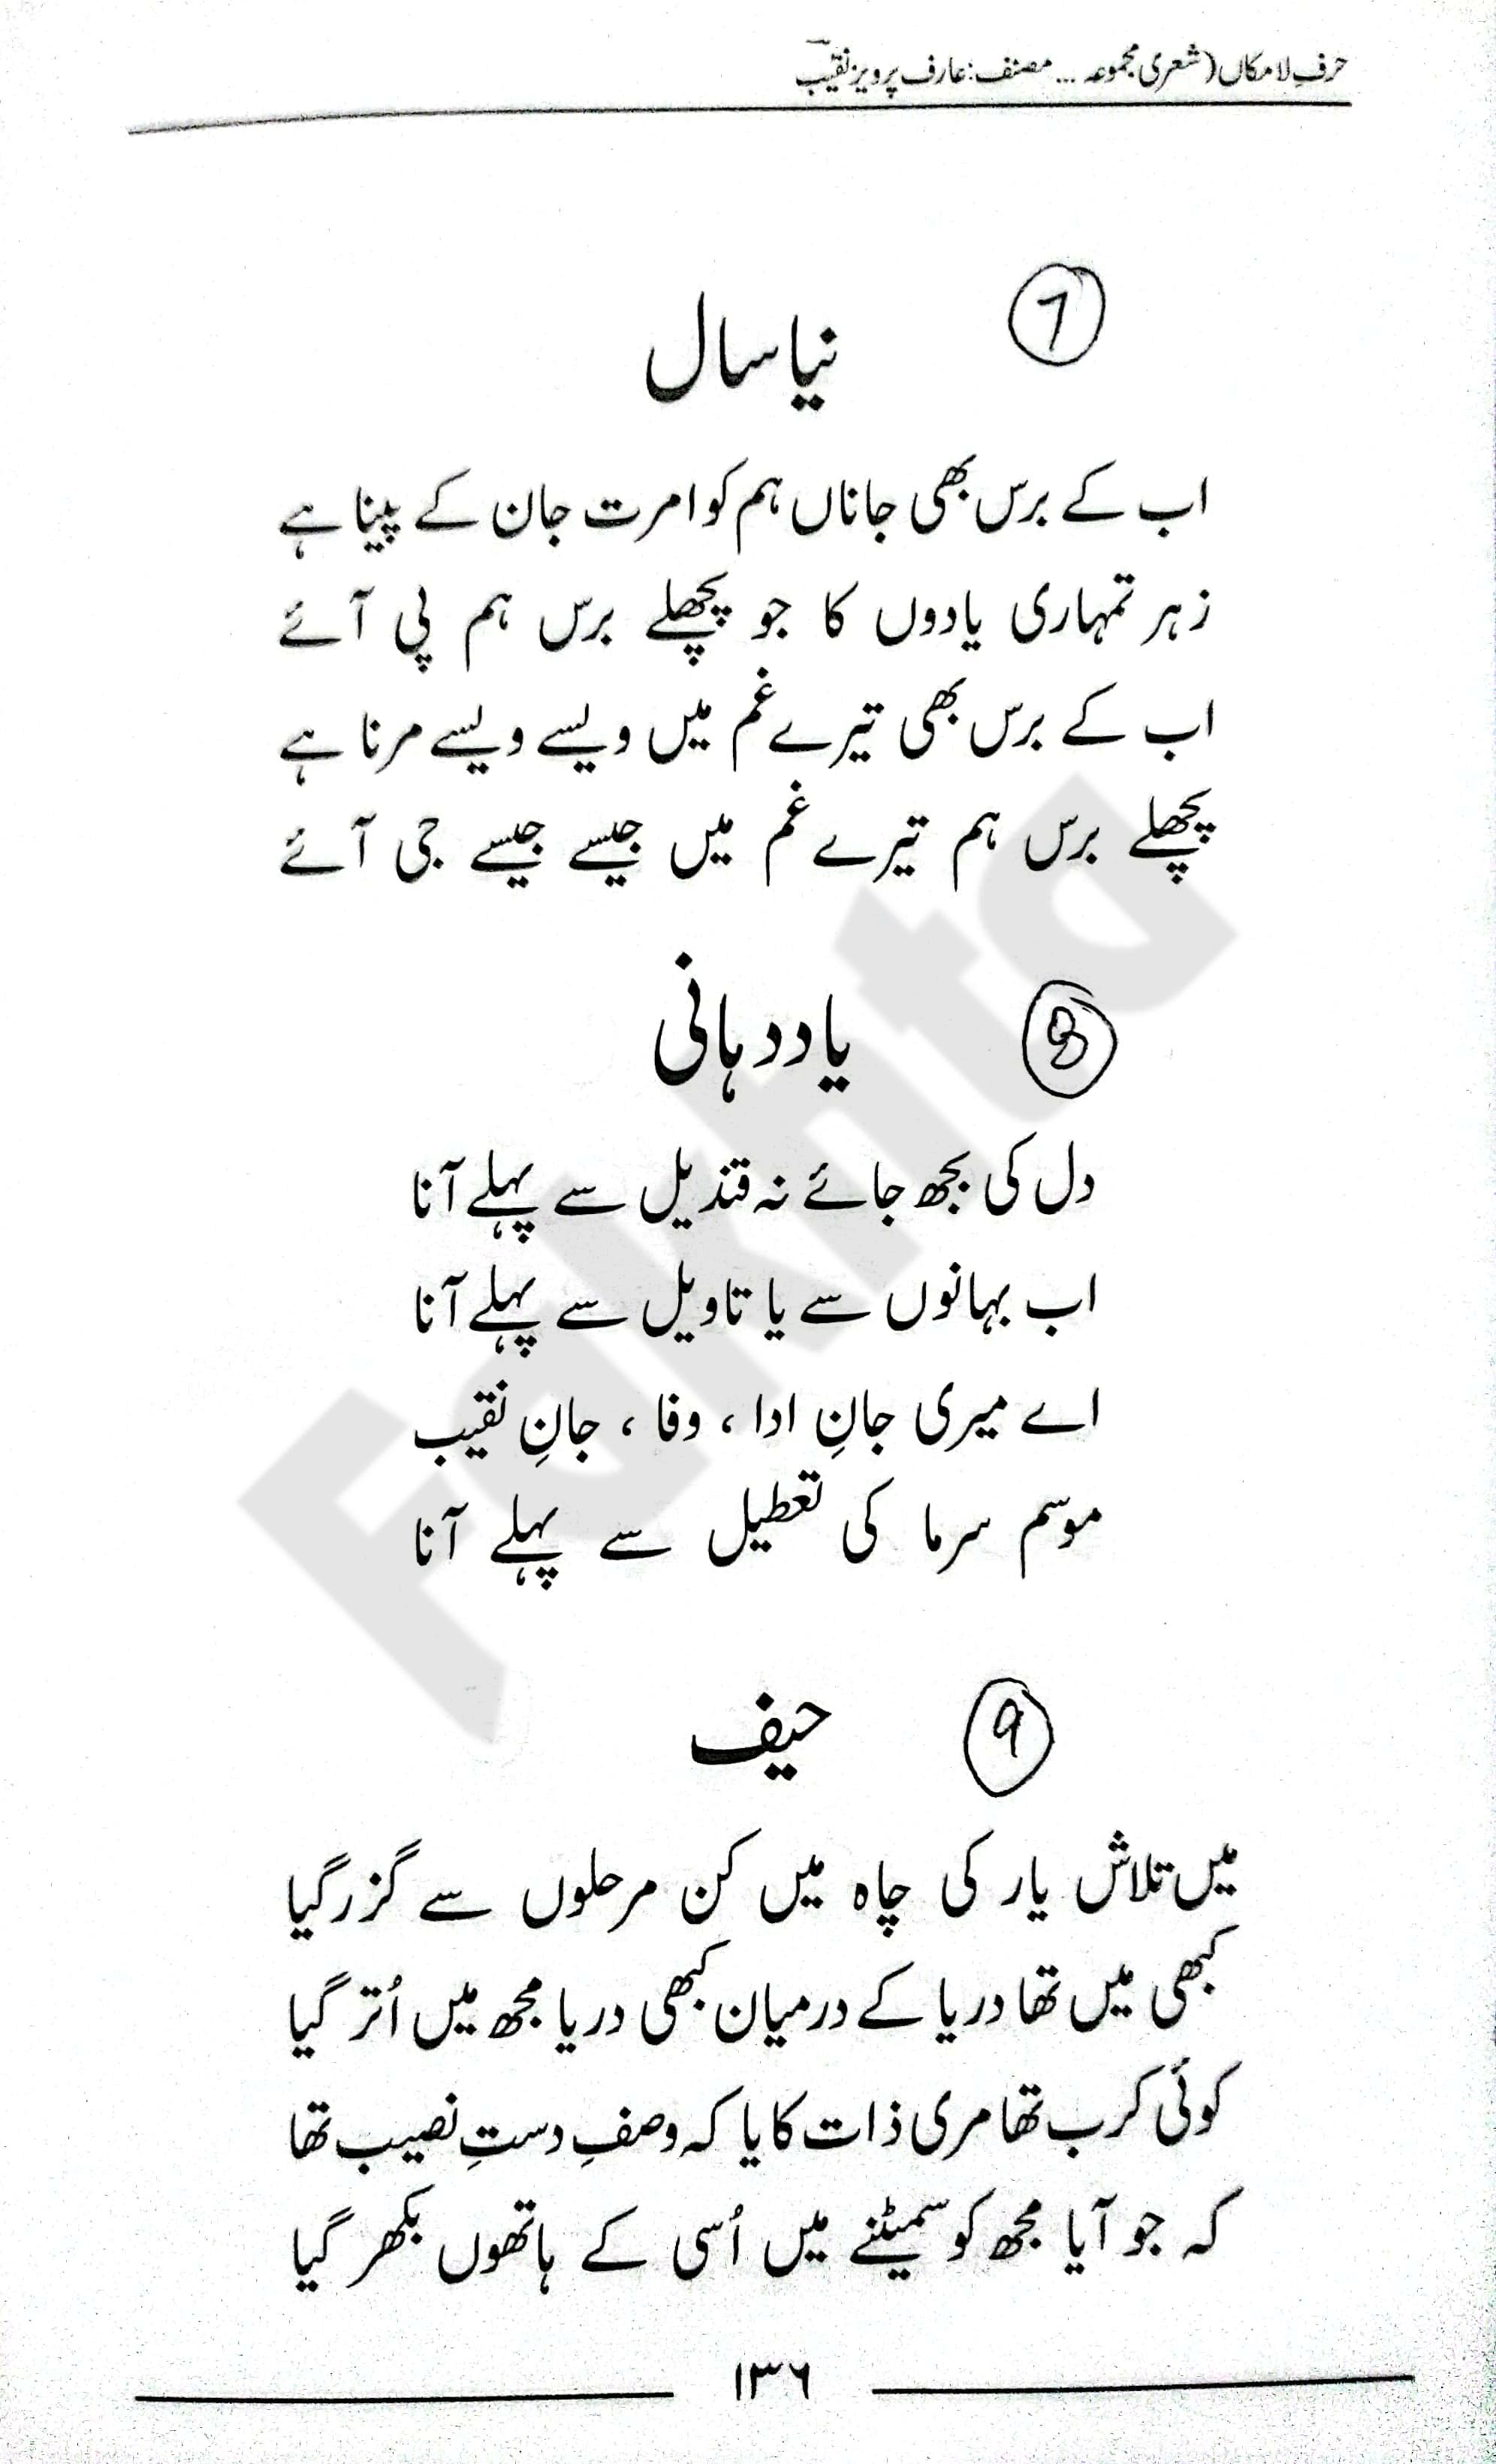 حرفِ لامکاں (شعری مجموعہ ... مصنف: عارف پرویز نقیبؔ
7
نیا سال
اب کے برس بھی جاناں ہم کو امرت جان کے پینا ہے
زہر تمہاری یادوں کا جو پچھلے برس ہم پی آئے
اب کے برس بھی تیرے غم میں ویسے ویسے مرنا ہے
پچھلے برس ہم تیرے غم میں جیسے جیسے جی آئے
8
یاد دہانی
دل کی بجھ جائے نہ قندیل سے پہلے آنا
اب بہانوں سے یا تاویل سے پہلے آنا
اے میری جانِ ادا ، وفا ، جانِ نقیب
موسم سرما کی تعطیل سے پہلے آنا
9
حیف
میں تلاش یار کی چاہ میں کن مرحلوں سے گزر گیا
کبھی میں تھا دریا کے درمیان کبھی دریا مجھ میں اُتر گیا
کوئی کرب تھا مری ذات کا یا کہ وصفِ دستِ نصیب تھا
کہ جو آیا مجھ کو سمیٹنے میں اُسی کے ہاتھوں بکھر گیا
۱۳۶
Fakhta